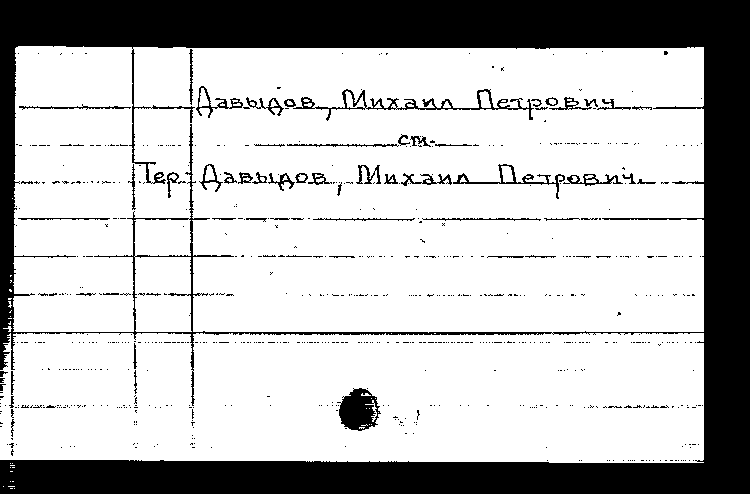 Давыдов, Михаил Петрович
см.
Тер-Давыдов, Михаил Петрович.